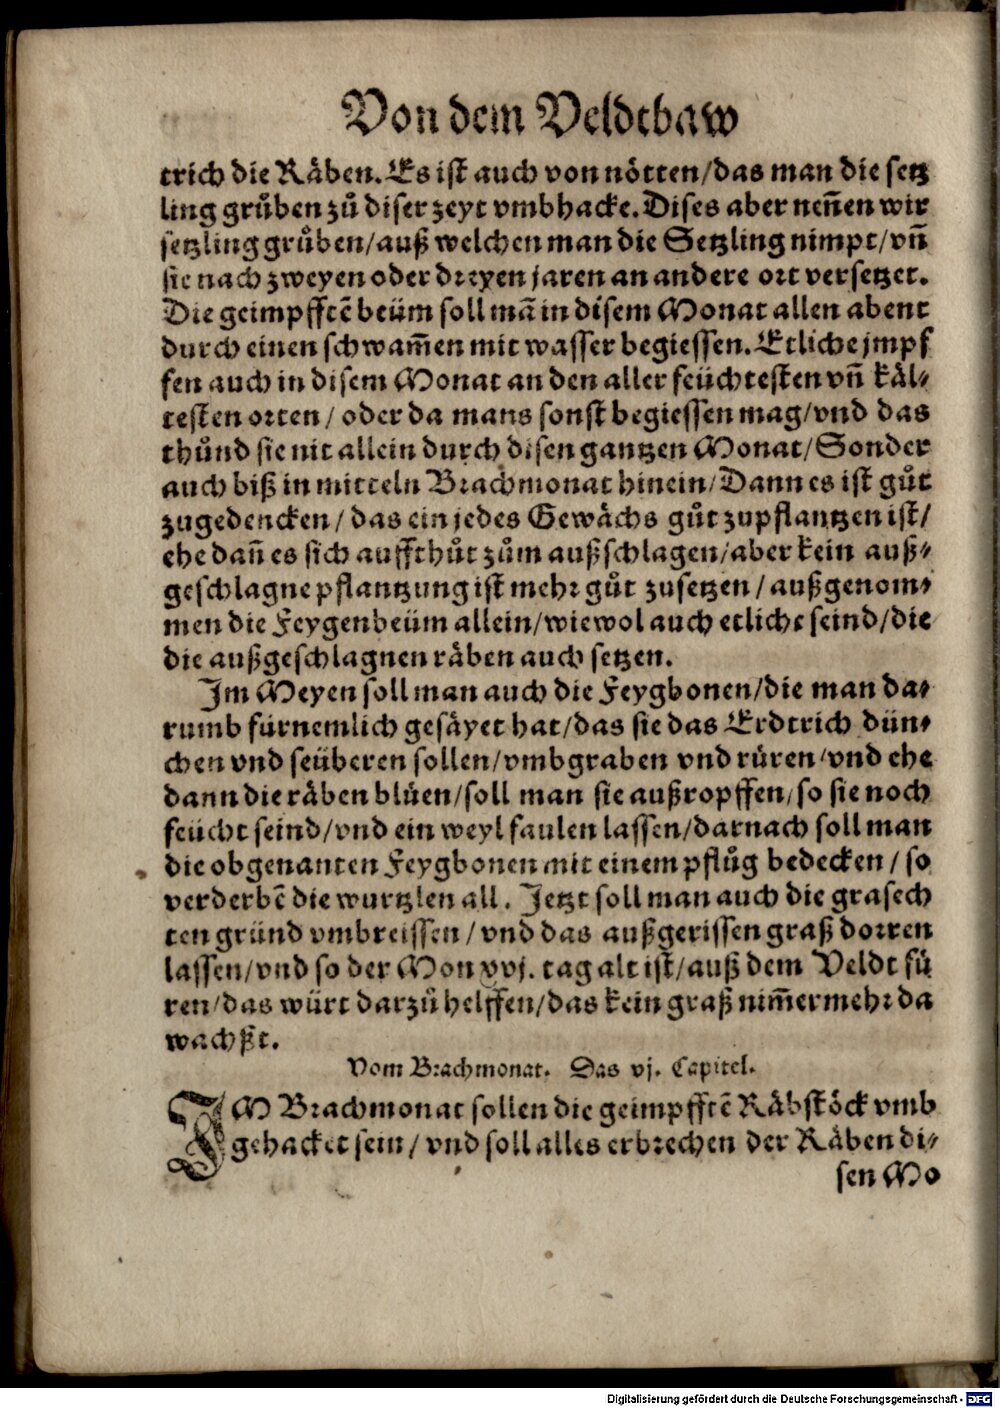 Von dem Veldtbaw
trich die Räben. Es ist auch von nötten/das man die setz
ling grůben zů diser zeyt vmbhacke. Dises aber neñen wir
setzling grůben/auß welchen man die Setzling nimpt/vñ
sie nach zweyen oder dreyen jaren an andere ort versetzet.
Die geimpfftẽ beüm soll mã in disem Monat allen abent
durch einen schwam̃en mit wasser begiessen. Etliche jmpf
fen auch in disem Monat an den aller feüchtesten vñ käl⸗
testen orten/ oder da mans sonst begiessen mag/vnd das
thůnd sie nit allein durch disen gantzen Monat/Sonder
auch biß in mitteln Brachmonat hinein/Dann es ist gůt
zugedencken/ das ein jedes Gewächs gůt zupflantzen ist/
ehe dañ es sich auffthůt zům außschlagen/aber kein auß⸗
geschlagne pflantzung ist mehr gůt zusetzen/ außgenom⸗
men die Feygenbeüm allein/wiewol auch etliche seind/die
die außgeschlagnen räben auch setzen.
Im Meyen soll man auch die Feygbonen/die man da⸗
rumb fürnemlich gesäyet hat/das sie das Erdtrich dün⸗
chen vnd seüberen sollen/vmbgraben vnd rüren/vnd ehe
dann die räben blüen/soll man sie außropffen/so sie noch
feücht seind/vnd ein weyl faulen lassen/darnach soll man
die obgenanten Feygbonen mit einem pflůg bedecken/ so
verderbẽ die wurtzlen all. Jetzt soll man auch die grasech
ten gründ vmbreissen/ vnd das außgerissen graß dorren
lassen/vnd so der Mon xvj. tag alt ist/auß dem Veldt fü
ren/das würt darzů helffen/das kein graß nim̃ermehr da
wachßt.
Vom Brachmonat. Das vj. Capitel.
IM Brachmonat sollen die geimpfftẽ Räbstöck vmb
gehacket sein/ vnd soll alles erbrechen der Räben di⸗
sen Mo
Digitalisierung gefördert durch die Deutsche Forschungsgemeinschaft - DFG